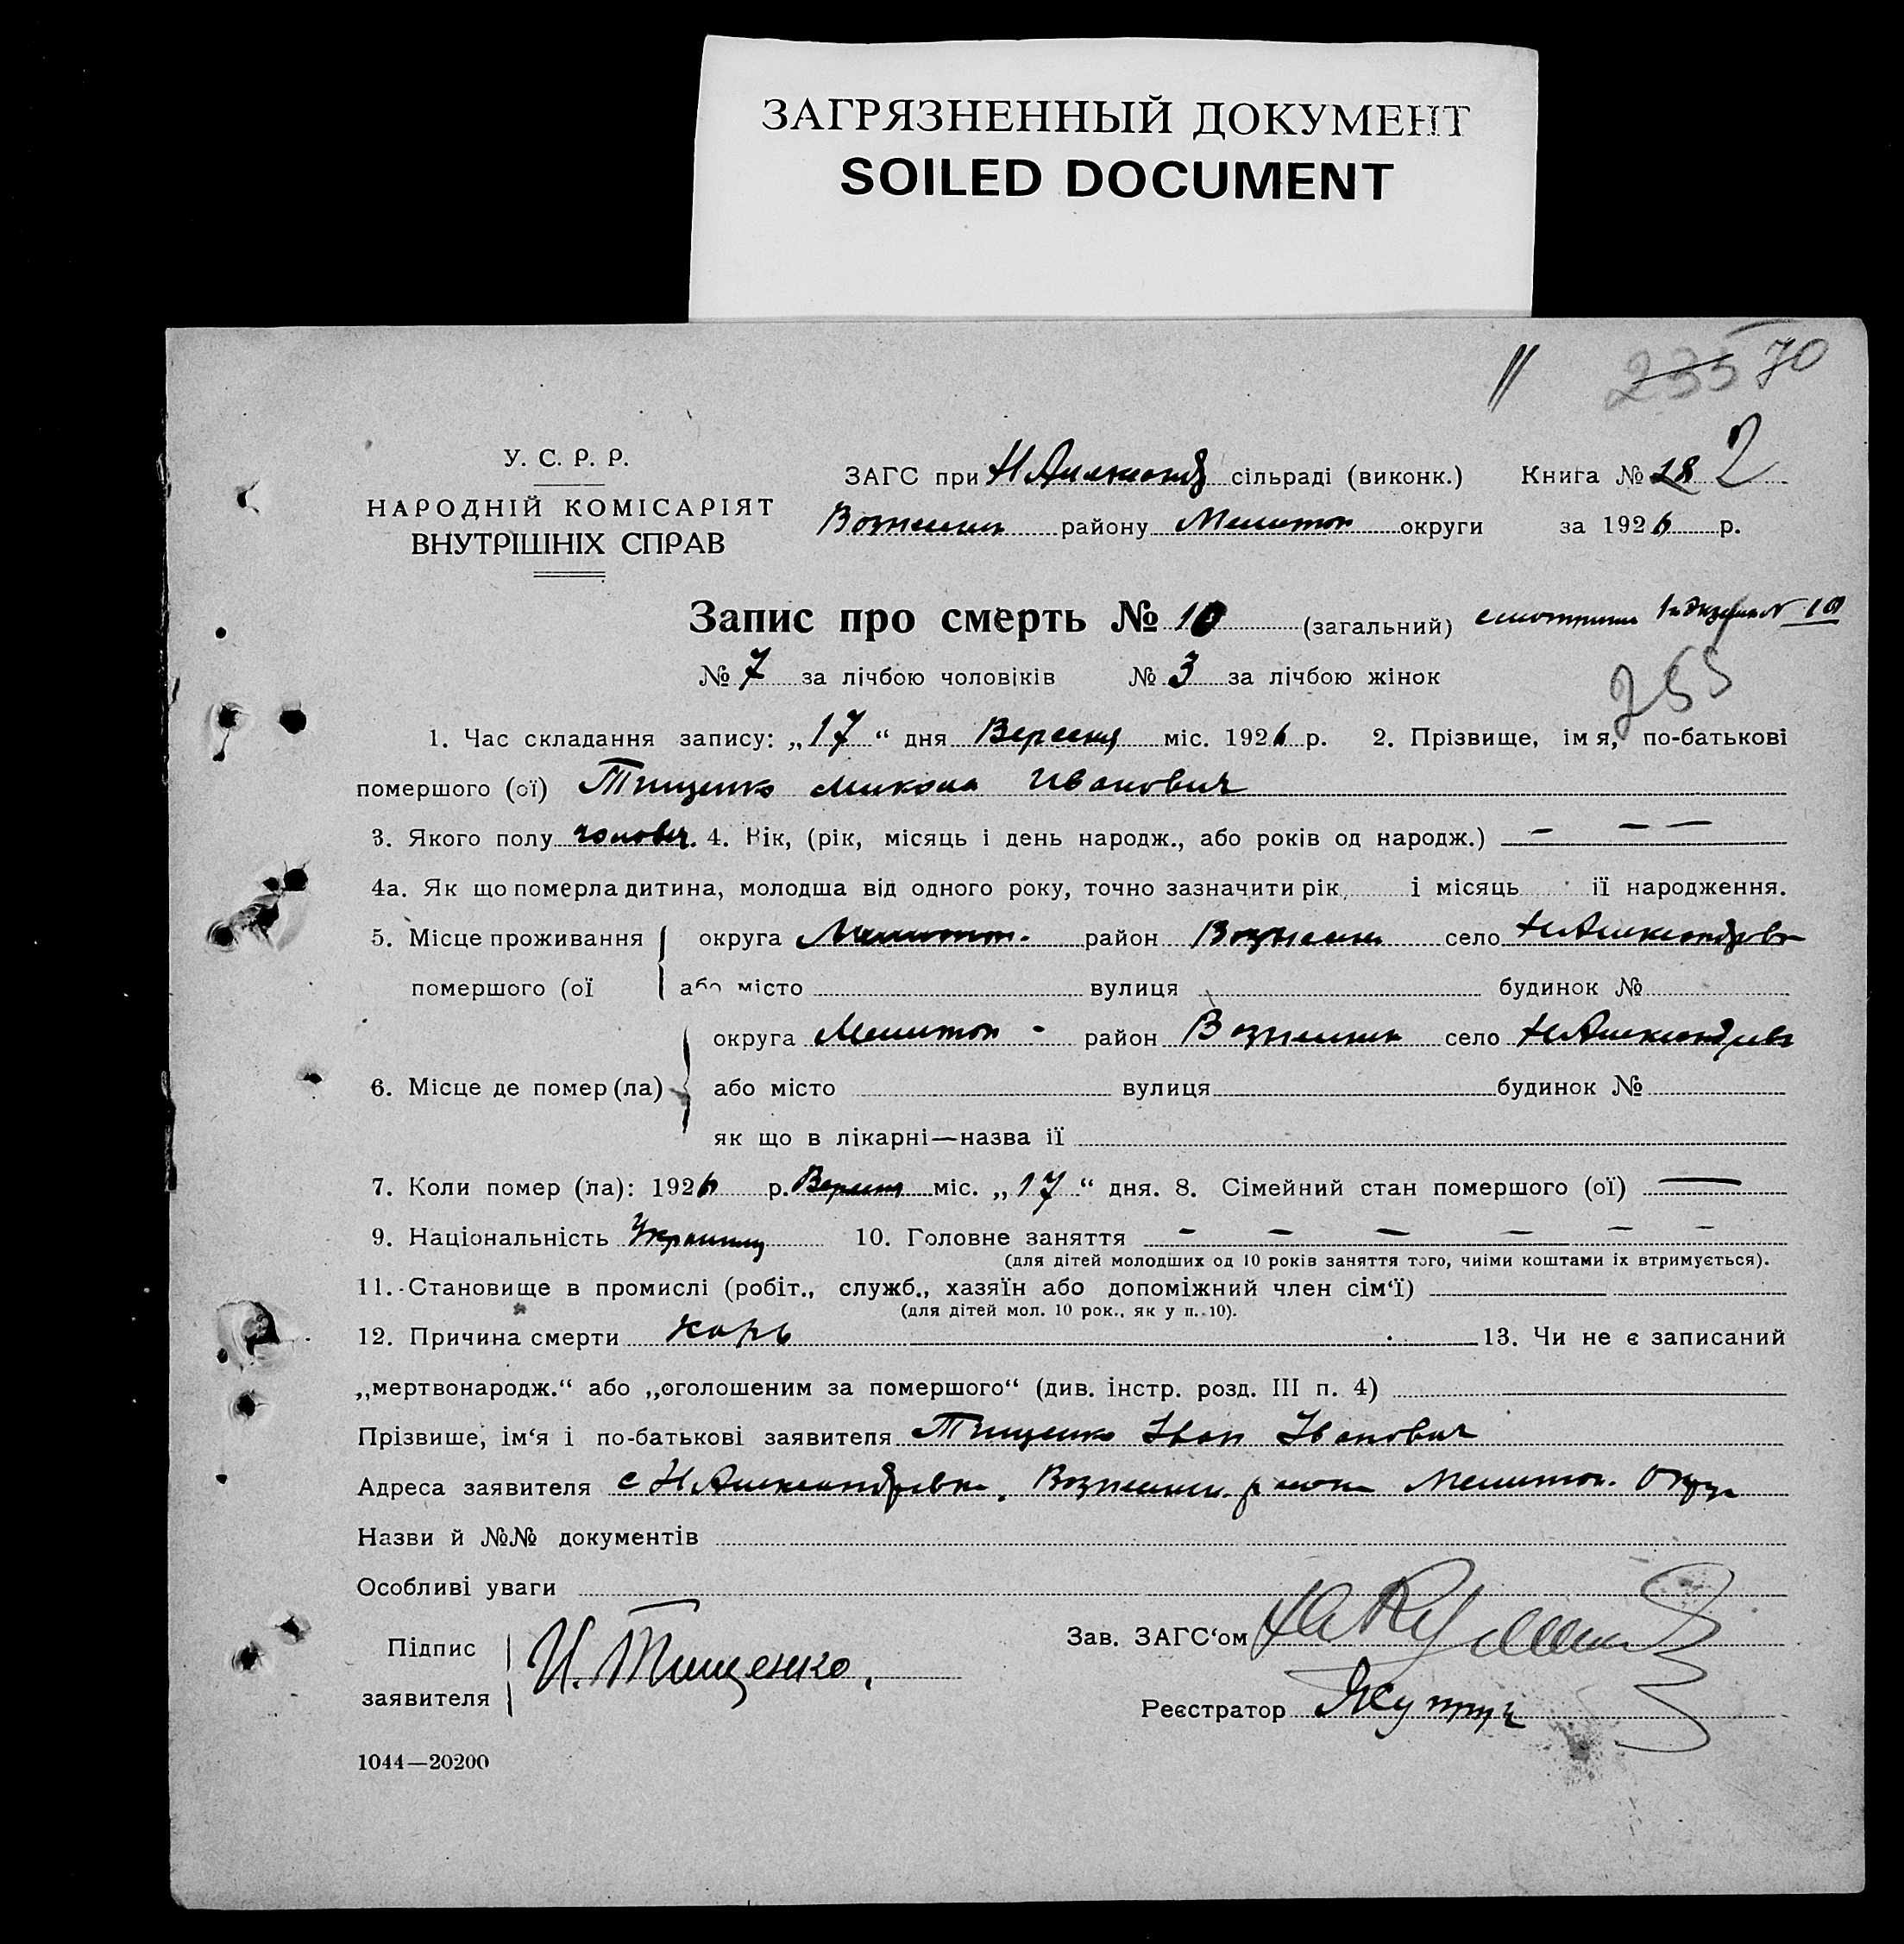 ЗАГРЯЗНЕННЫЙ ДОКУМЕНТ
SOILED DOCUMENT
235 70
У. С. Р. Р.
НАРОДНІЙ КОМІСАРІЯТ
ВНУТРІШНІХ СПРАВ
ЗАГС при Н Александ сільраді (виконк.) Книга № 28 2
Вознесенк району Мелитоп округи за 1926 р.
Запис про смерть № 10 (загальний)
№ 7 за лічбою чоловіків № 3 за лічбою жінок
255
1. Час складання запису: „17“ дня Вересня міс. 1926 р. 2. Прізвище, імя, по-батькові
помершого (ої) Тищенко Микола Иванович
3. Якого полу чоловіч. 4. Вік, (рік, місяць і день народж., або років од народж.) — — —
4а. Як що померла дитина, молодша від одного року, точно зазначити рік і місяць її народження.
5. Місце проживання помершого (ої округа Мелитоп. район Вознесенк село Н Александровка
або місто вулиця будинок №
6. Місце де помер (ла) округа Мелитоп - район Вознесенк село Н Александровка
або місто вулиця будинок №
як що в лікарні—назва її
7. Коли помер (ла): 1926 р. Вересня міс. „17“ дня. 8. Сімейний стан помершого (ої) —
9. Національність Украинец 10. Головне заняття - - - - - -
(для дітей молодших од 10 років заняття того, чиїми коштами їх втримується).
11. Становище в промислі (робіт., служб., хазяїн або допоміжний член сім‘ї)
(для дітей мол. 10 рок., як у п. 10).
12. Причина смерти корь 13. Чи не є записаний
„мертвонародж.“ або „оголошеним за помершого“ (див. інстр. розд. III п. 4)
Прізвише, ім‘я і по-батькові заявителя Тищенко Іван Іванович
Адреса заявителя с Н Александровка, Вознесенк. района Мелитоп. Округ
Назви й №№ документів
Особливі уваги
Підпис заявителя И. Тищенко.
Зав. ЗАГС‘ом
Реєстратор
1044—20200